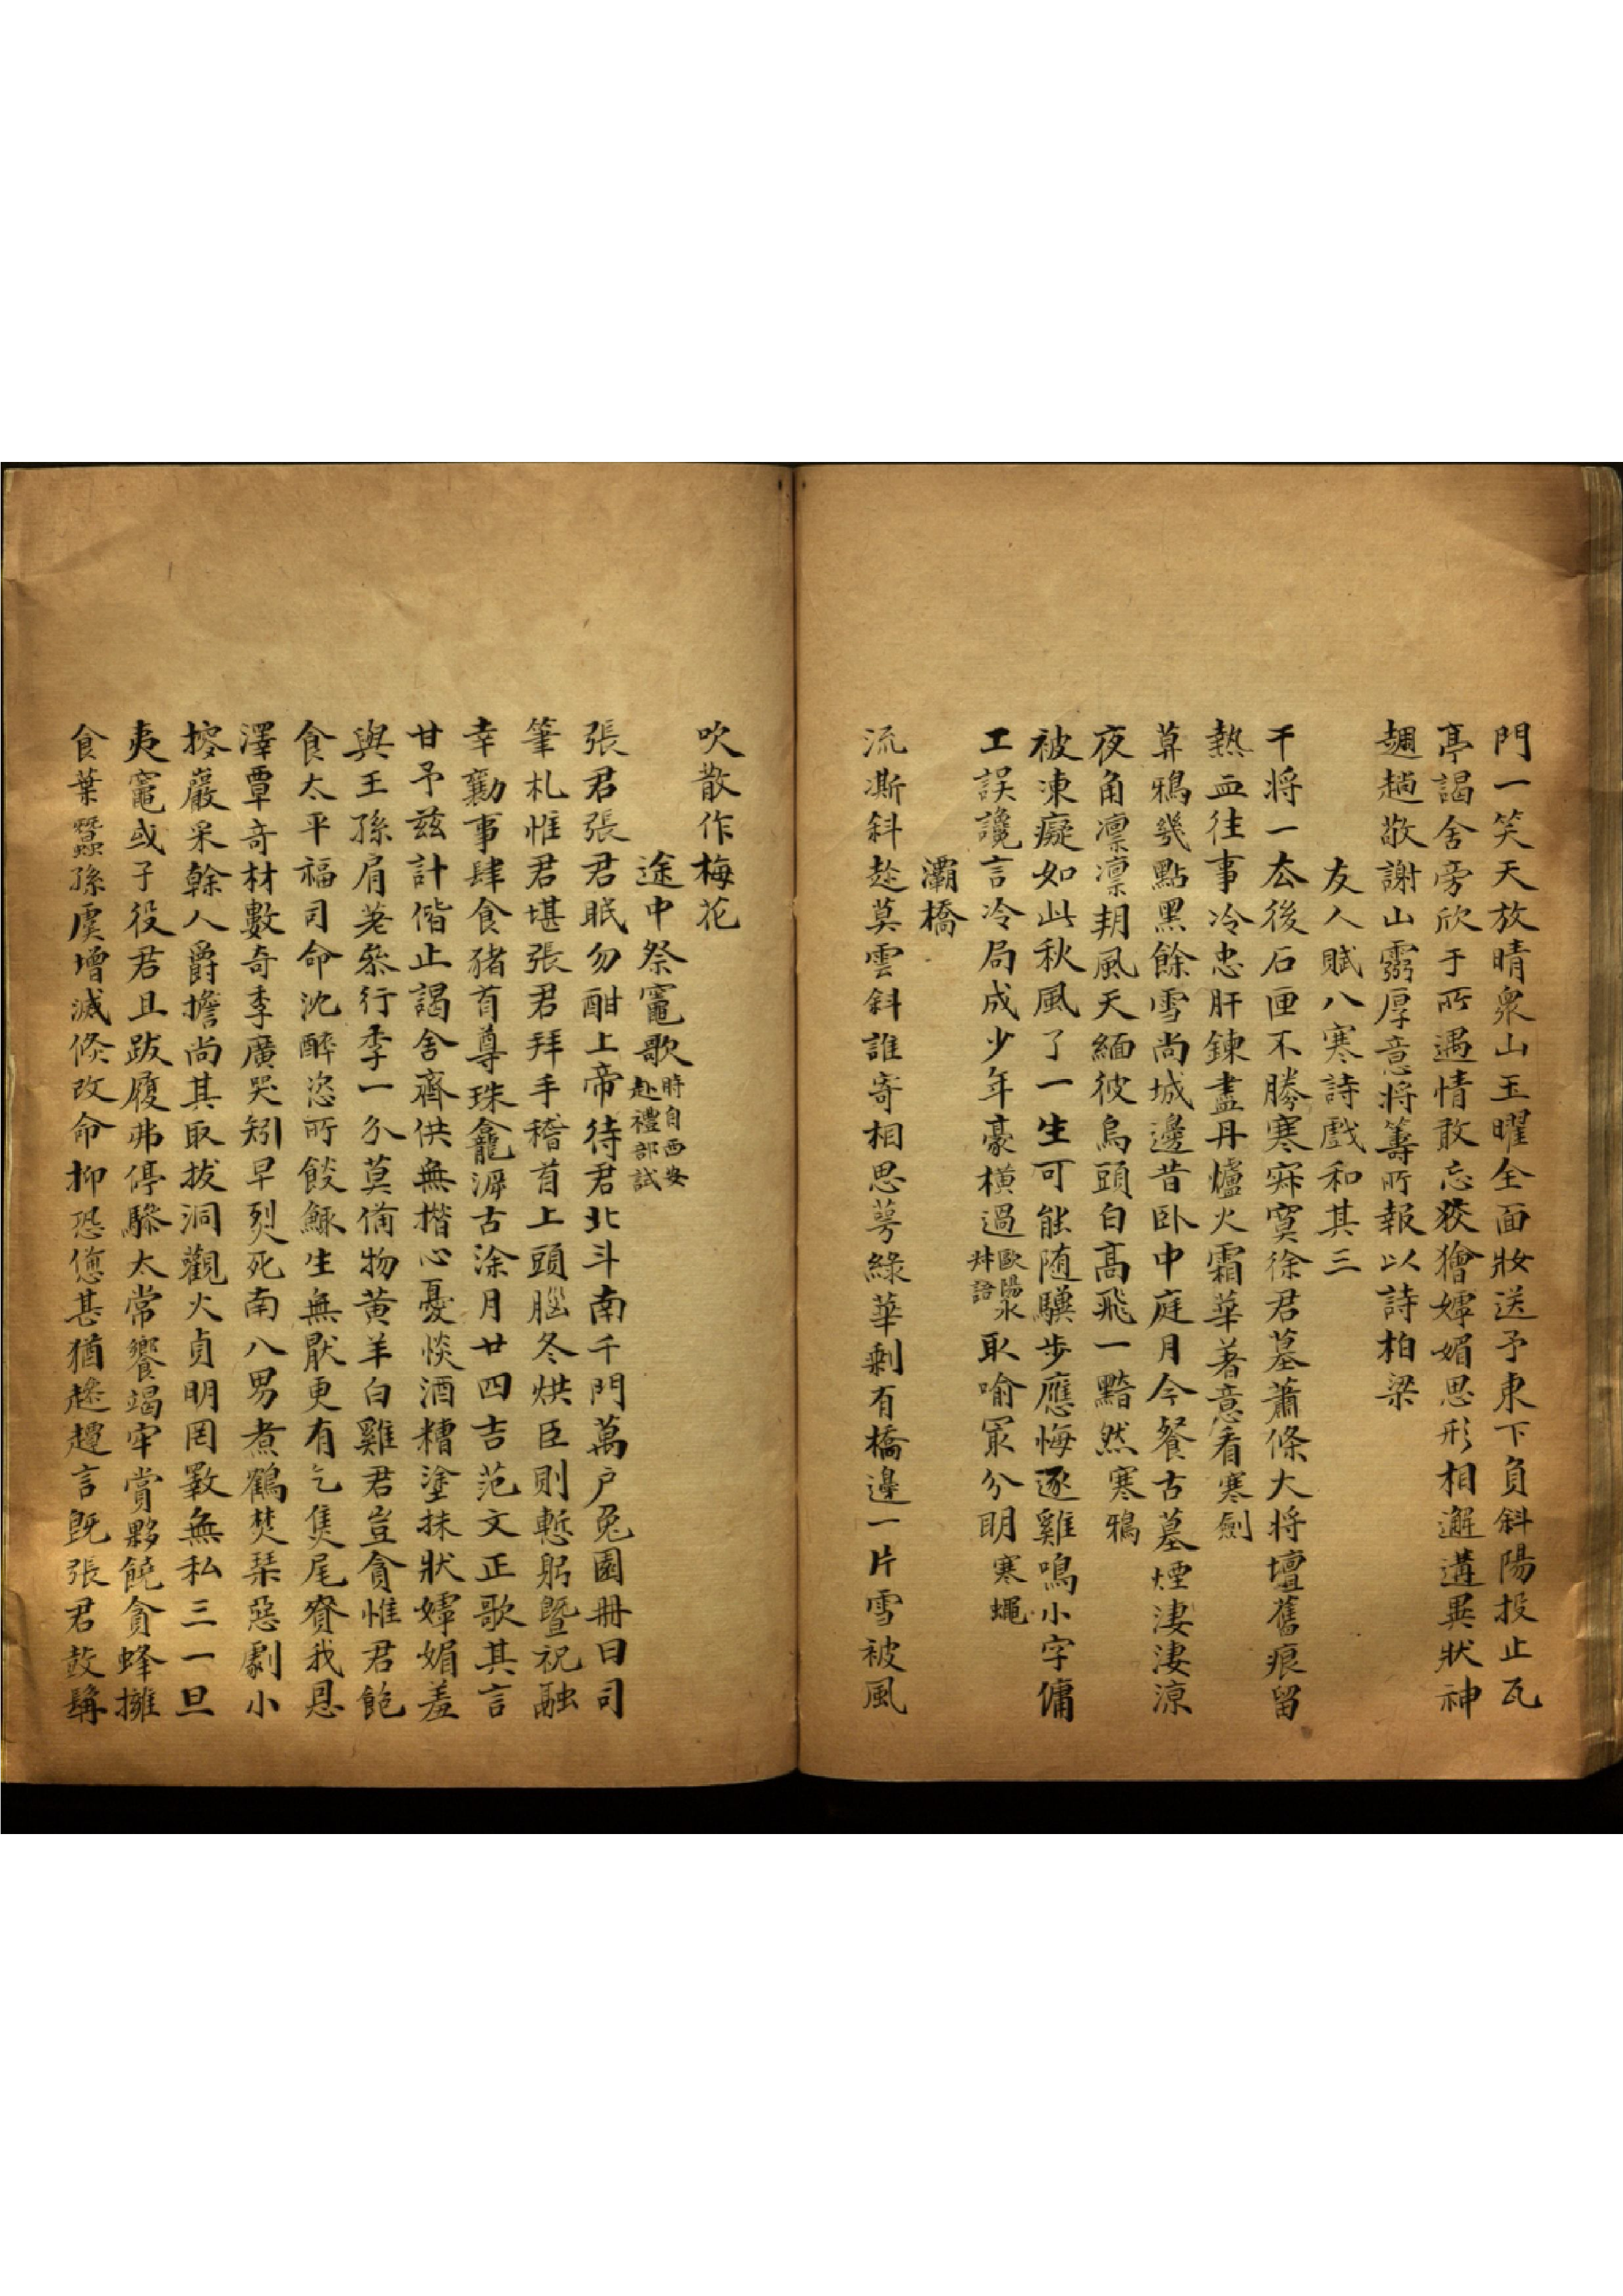 門一笑天放晴衆山玉曜全面妝送予東下負斜陽投止瓦
亭謁舍旁欣于所遇情敢忘狡獪嫭媚思形相邂遘異狀神
趨趟敬謝山靈厚意將籌所報以詩柏梁
友人賦八寒詩戲和其三
干將一厺後石匣不勝寒寂寞徐君墓蕭條大將壇舊痕留
熱血往事冷忠肝鍊盡丹爐火霜華著意看寒劍
算鴉幾點黑餘雪尚城邊昔卧中庭月今餐古墓煙淒淒涼
夜角凛凛朔風天緬彼烏頭白高飛一黯然寒鴉
被凍癡如此秋風了一生可能随驥步應悔逐雞鳴小字傭
工誤讒言冷局成少年豪横過歐陽永叔語取喻冣分明寒蠅
灞橋
流澌斜趁莫雲斜誰寄相思萼綠華剩有橋邊一片雪被風
吹散作梅花
途中祭竃歌時自西安赴禮部試
張君張君眠勿酣上帝待君北斗南千門萬户兔園冊日司
筆札惟君堪張君拜手稽首上頭腦冬烘臣則慙躬曁祝融
幸勷事肆食猪首尊珠龕源古涂月廿四吉范文正歌其言
甘予兹計偕止謁舍齋供無揩心憂惔酒糟塗抹狀嫭媚羞
與王孫肩差參行李一介莫備物黄羊白雞君豈貪惟君飽
食太平福司命沈醉恣所餤鯫生無厭更有乞隻尾賚我恩
澤覃奇材數奇季廣哭矧早烈死南八男煮鶴焚琹惡劇小
搲巖采榦人爵擔尚其取拔洞觀火貞明罔斁無私三一旦
夷竃或子役君且跋履弗停驂太常饗竭牢賞夥饒貪蜂擁
食葉蠶孫虞增減倏改命抑恐㥶甚猶趑趄言既張君鼓髯